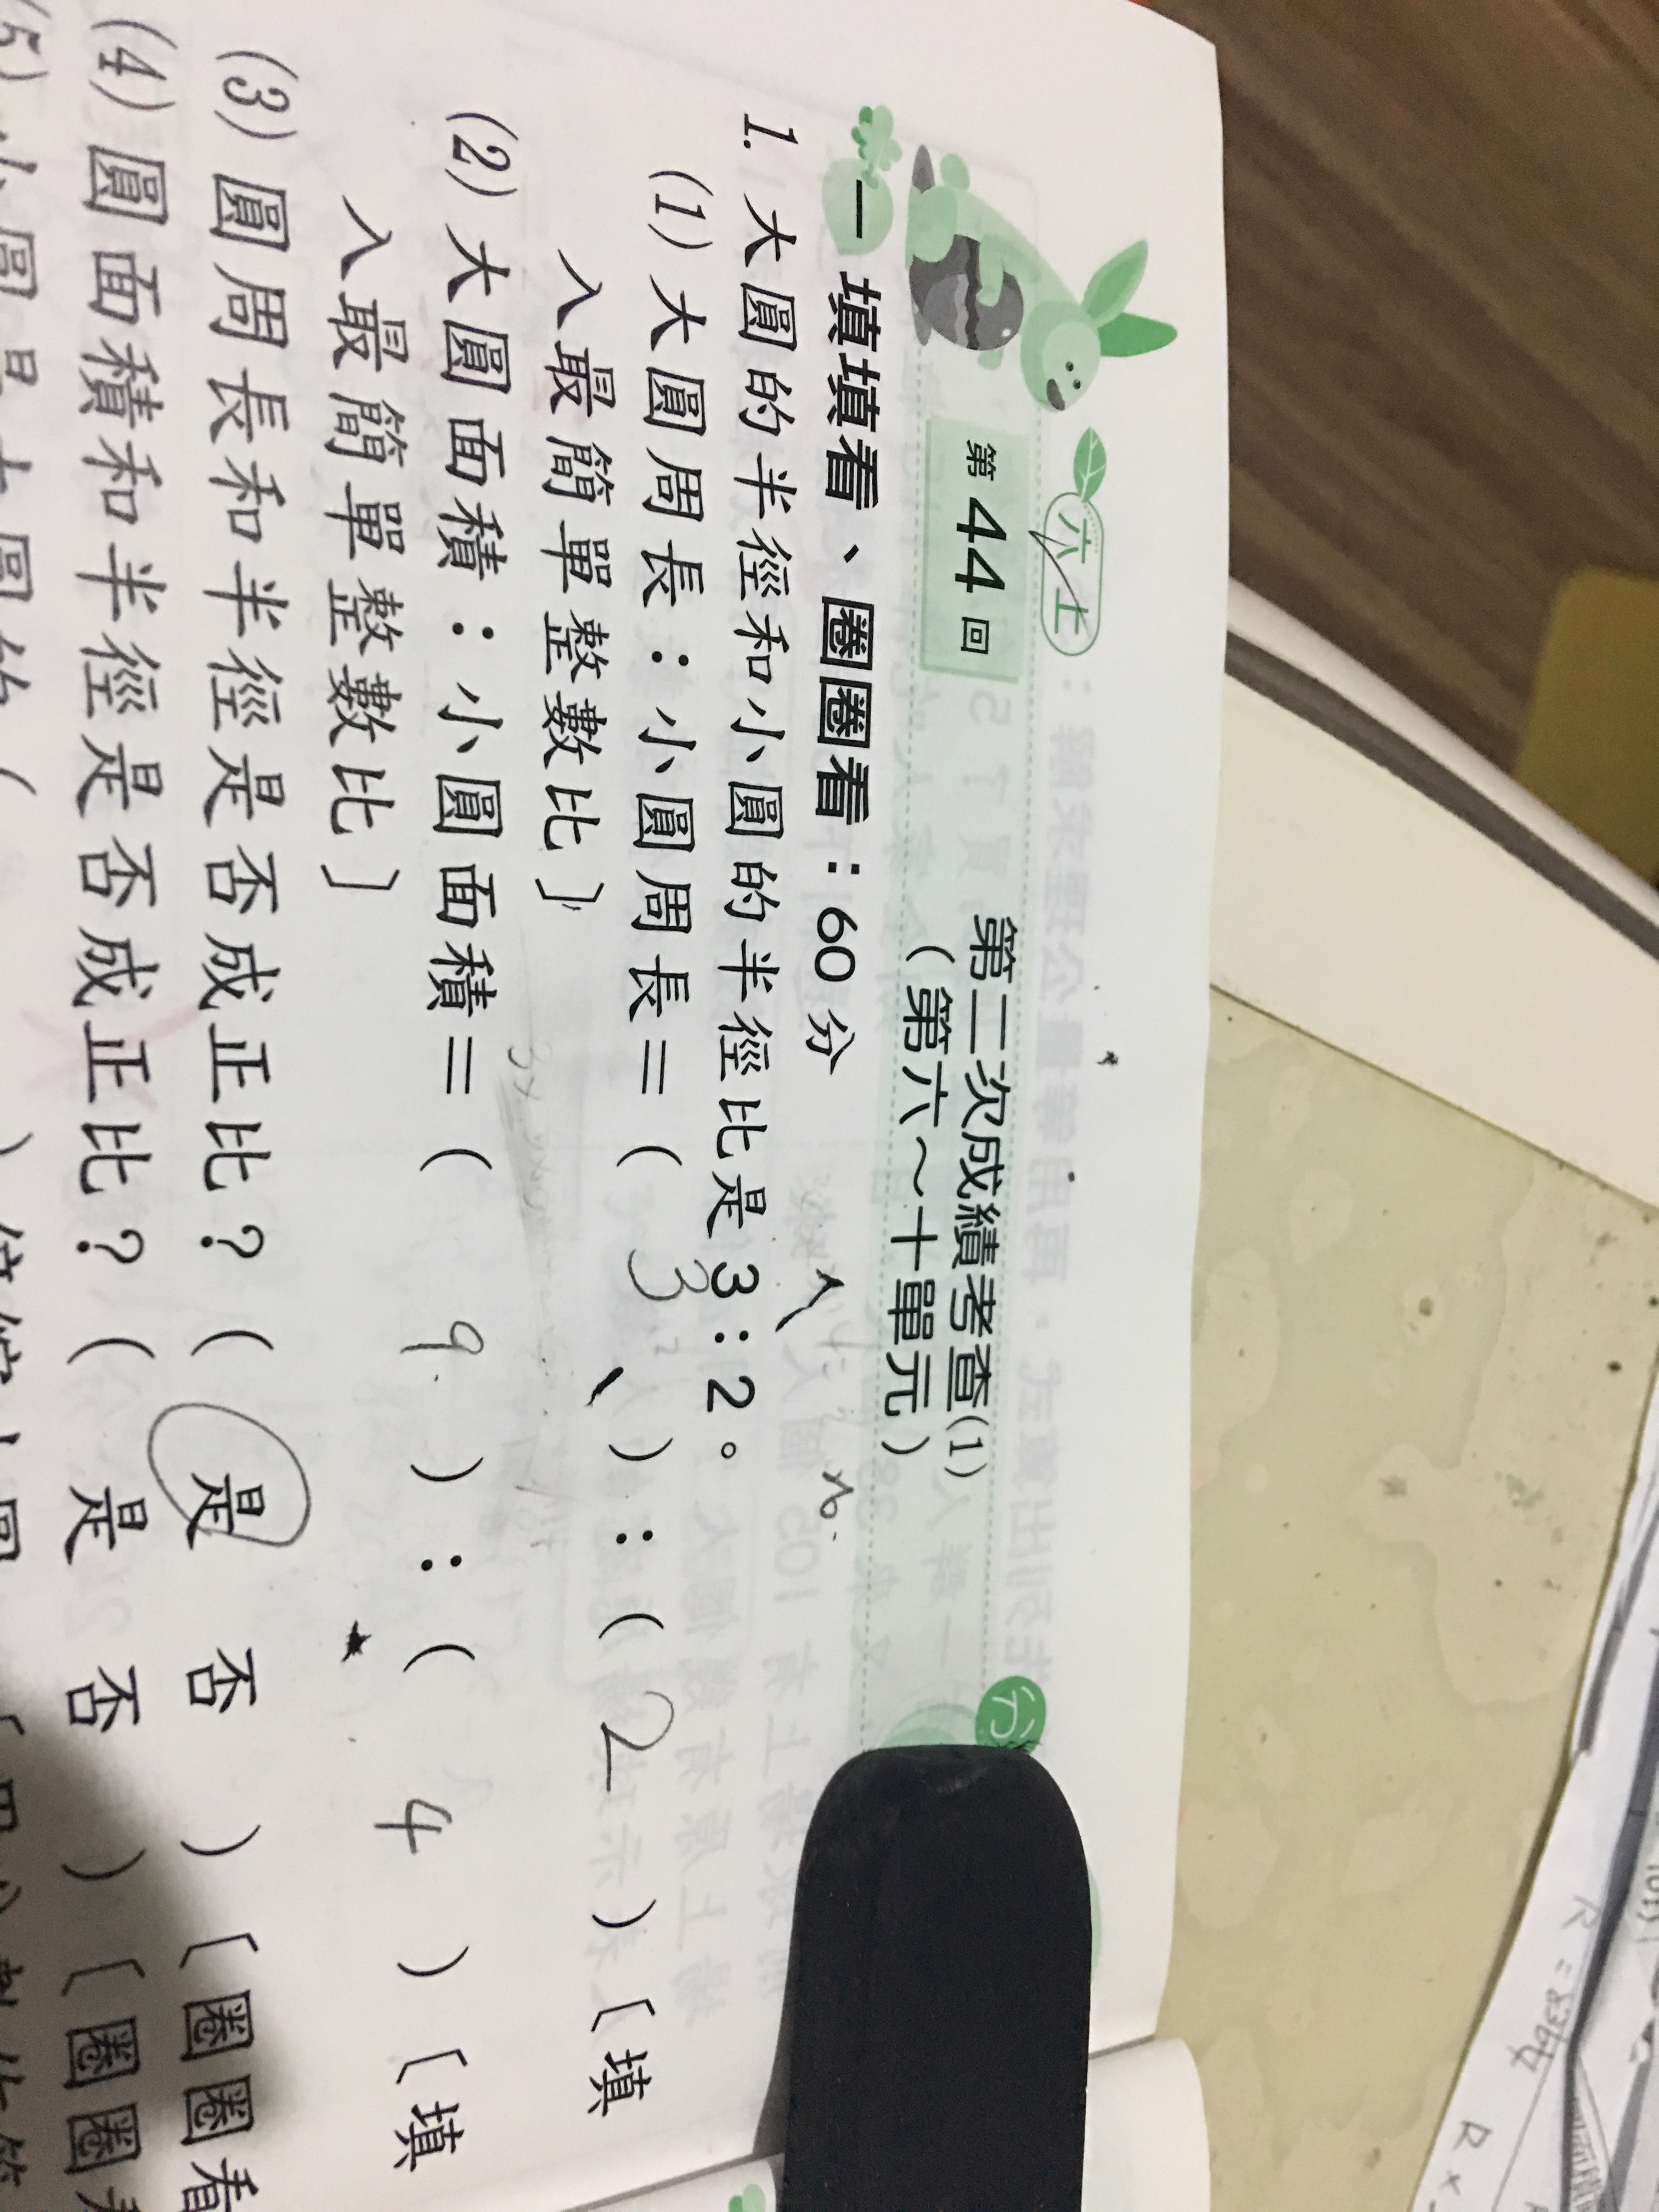 六上
第44回 第二次成績考查(1)
(第六～十單元)
分
一 填填看、圈圈看：60分
1. 大圓的半徑和小圓的半徑比是3：2。
(1) 大圓周長：小圓周長＝( 3 )：( 2 )〔填
入最簡單整數比〕
(2) 大圓面積：小圓面積＝( 9 )：( 4 )〔填
入最簡單整數比〕
(3) 圓周長和半徑是否成正比？( 是 否 )〔圈圈看
(4) 圓面積和半徑是否成正比？( 是 否 )〔圈圈看